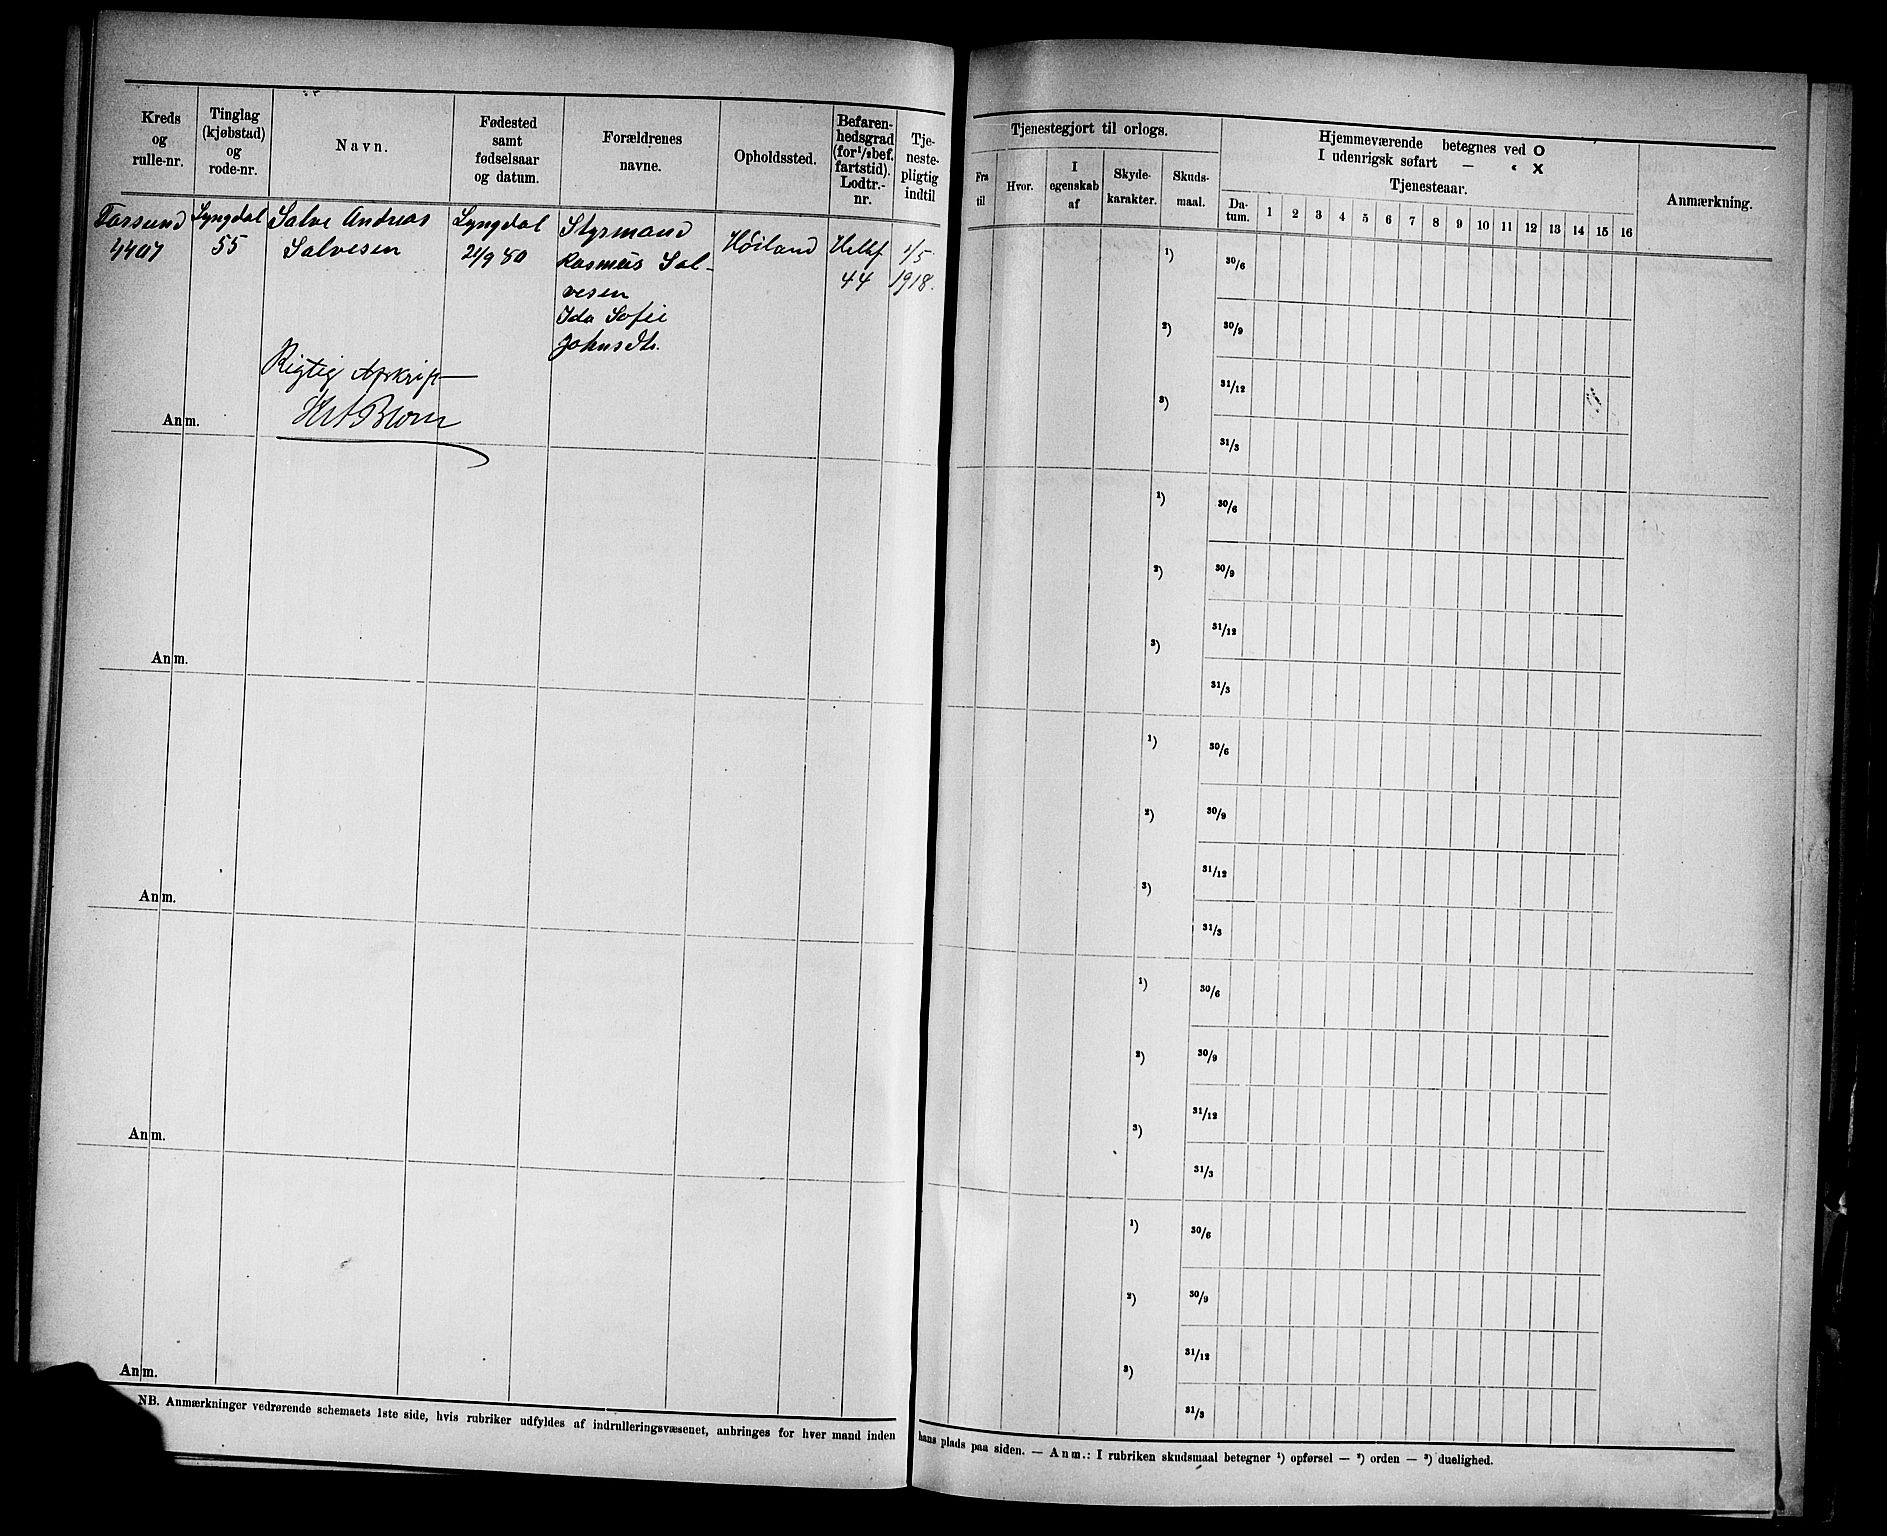 Kreds
og
rulle-nr.
Tinglag
(kjøbstad)
og
rode-nr.
Navn.
Fødested
samt
fødselsaar
og datum.
Forældrenes
navne.
Opholdssted.
Befaren-
hedsgrad
(for ½bef.
fartstid).
Lodtr.-
nr.
Tje-
neste-
pligtig
indtil
Farsund
4407
Lyngdal
55
Salve Andreas
Salvesen
Lyngdal
21/9 80
Styrmand
Rasmus Sal-
vesen
Ida Sofie
Johnsdtr.
Høiland
Helbf
44
1/5
1918.
Rigtig Afskrift
Anm.
Anm.
Anm.
Anm.
Anm.
NB. Anmærkninger vedrørende schemaets 1ste side, hvis rubriker udfyldes af indrulleringsvæsenet, anbringes for hver mand inden
Tjenestegjort til orlogs.
Fra
til
Hvor.
I
egenskab
af
Skyde-
karakter.
Skuds-
maal.
Hjemmeværende betegnes ved O
I udenrigsk søfart — " X
Tjenesteaar.
Da-
tum.
1 2 3 4 5 6 7 8 9 10 11 12 13 14 15 16
Anmærkning.
¹)
30/6
²)
30/9
31/12
³)
31/3
¹)
30/6
²)
30/9
31/12
³)
31/3
¹)
30/6
²)
30/9
31/12
³)
31/3
¹)
30/6
²)
30/9
31/12
³)
31/3
¹)
30/6
²)
30/9
31/12
³)
31/3
hans plads paa siden. — Anm.: I rubriken skudsmaal betegner ¹) opførsel — ²) orden — ³) duelighed.